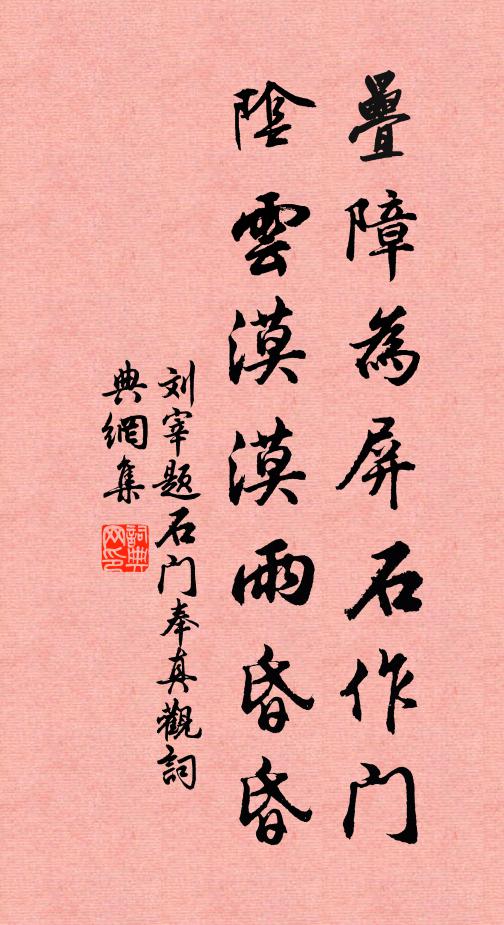 疊障為屏石作门
陰雲漠漠雨昏昏
刘宰题石门奉真觀詞
典網集
詞典网印